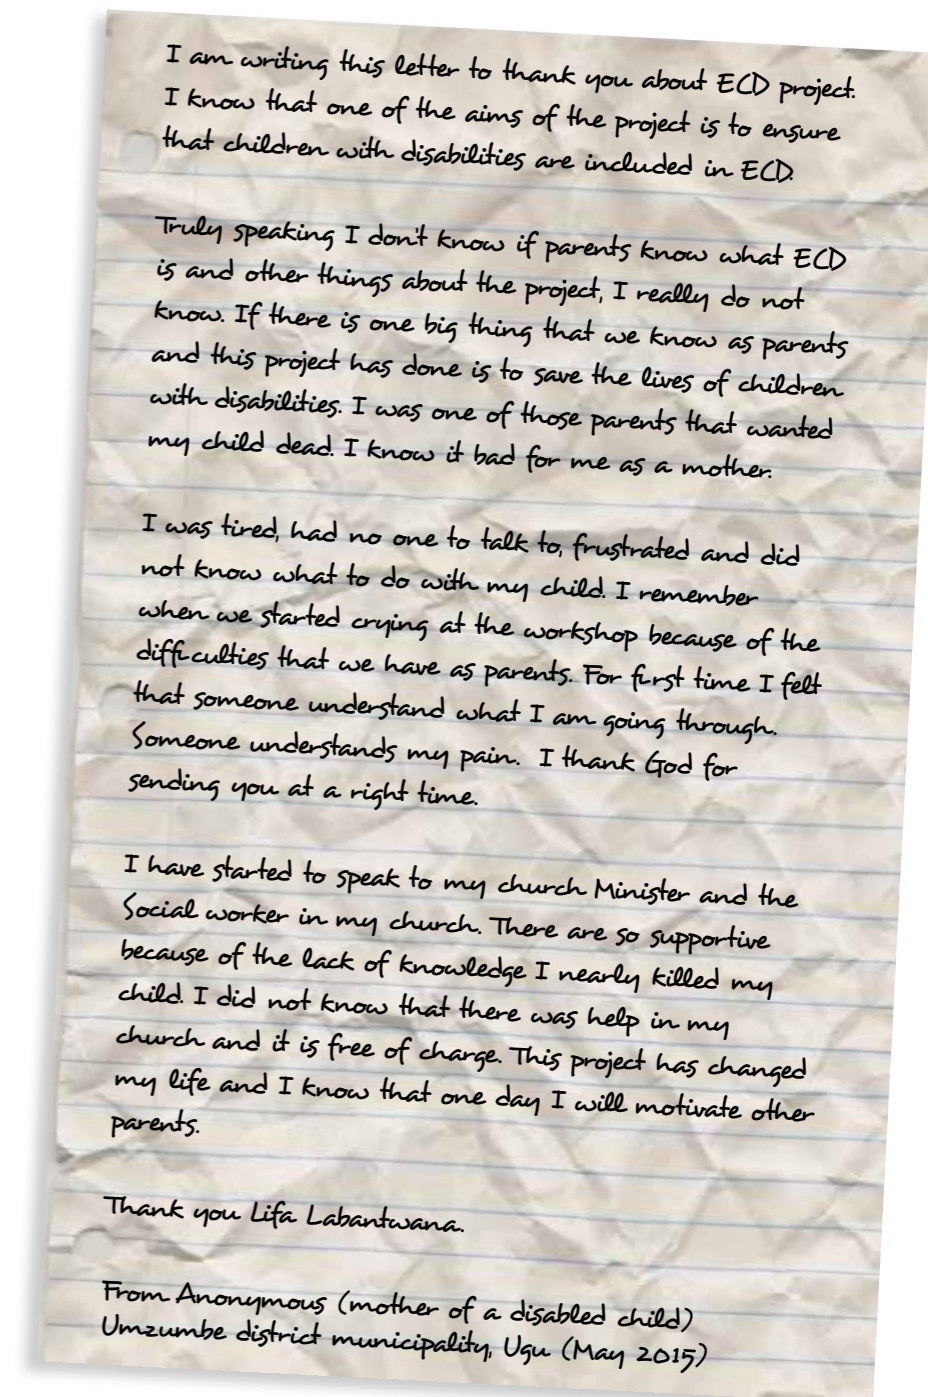 I am writing this letter to thank you about ECD project.
I know that one of the aims of the project is to ensure
that children with disabilities are included in ECD.
Truly speaking I don't know if parents know what ECD
is and other things about the project, I really do not
know. If there is one big thing that we know as parents
and this project has done is to save the lives of children
with disabilities. I was one of those parents that wanted
my child dead. I know it bad for me as a mother.
I was tired, had no one to talk to, frustrated and did
not know what to do with my child. I remember
when we started crying at the workshop because of the
difficulties that we have as parents. For first time I felt
that someone understand what I am going through.
Someone understands my pain. I thank God for
sending you at a right time.
I have started to speak to my church Minister and the
Social worker in my church. There are so supportive
because of the lack of knowledge I nearly killed my
child. I did not know that there was help in my
church and it is free of charge. This project has changed
my life and I know that one day I will motivate other
parents.
Thank you Lifa Labantwana.
From Anonymous (mother of a disabled child)
Umzumbe district municipality, Ugu (May 2015)